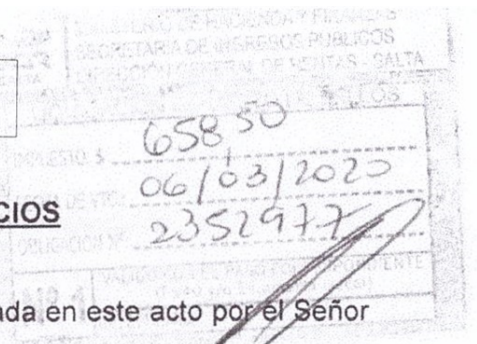 MINISTERIO DE HACIENDA Y FINANZAS
SECRETARIA DE INGRESOS PUBLICOS
DIRECCIÓN GENERAL DE RENTAS - SALTA
SELLOS
IMPUESTO $ 658,50
FECHA DE VTO. 06/03/2020
CIOS
OBLIGACION Nº 2352977
A10 4
ada en este acto por el Señor